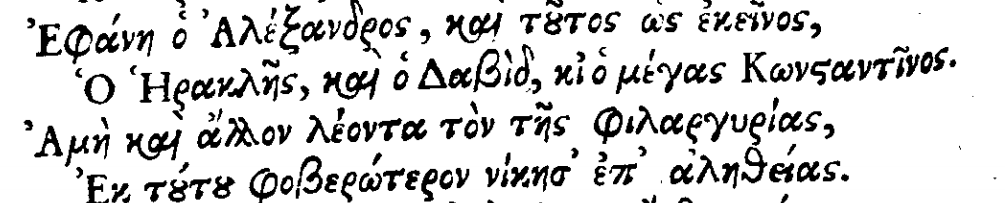 Ἐφάνη ὁ Ἀλέξανδρος, καὶ τȣ̃τος ὡς ἐκεῖνος,
Ὁ Ἡρακλῆς, καὶ ὁ Δαβὶδ, κὶ ὁ μέγας Κωνϛαντῖνος.
Ἀμὴ καὶ ἄλλον λέοντα τὸν τῆς φιλαργυρίας,
Ἐκ τȣ́τȣ φοβερώτερον νίκησ' ἐπ' ἀληθείας.